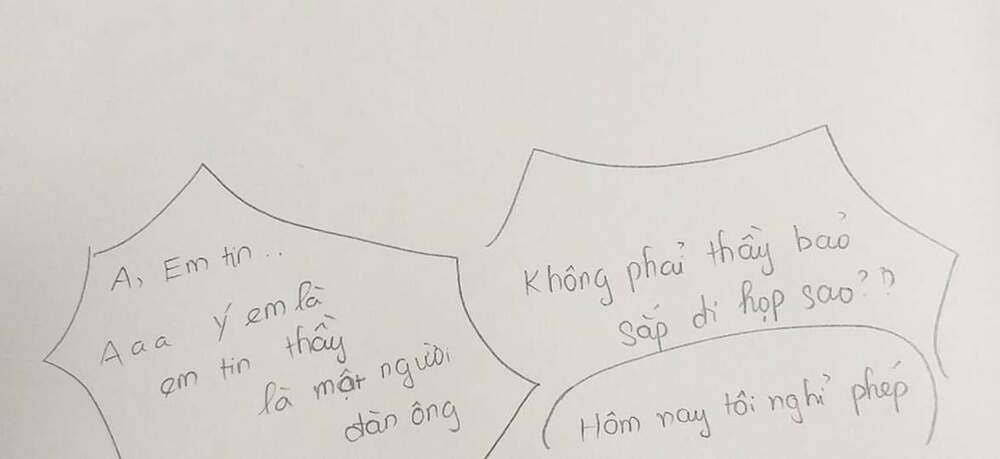 A, Em tin..
Aaa ý em là
em tin thầy
là một người
đàn ông
Không phải thầy bảo
sắp đi họp sao??
Hôm nay tôi nghỉ phép